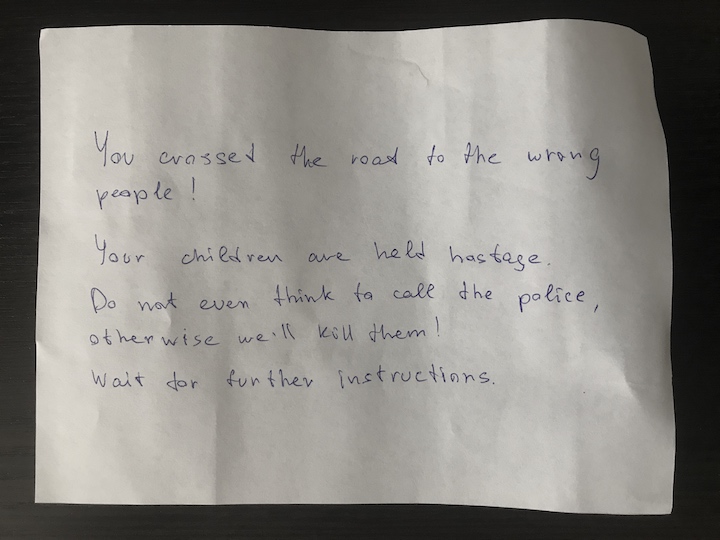 You crossed the road to the wrong
people!
Your children are held hostage.
Do not even think to call the police,
otherwise we'll kill them!
Wait for further instructions.